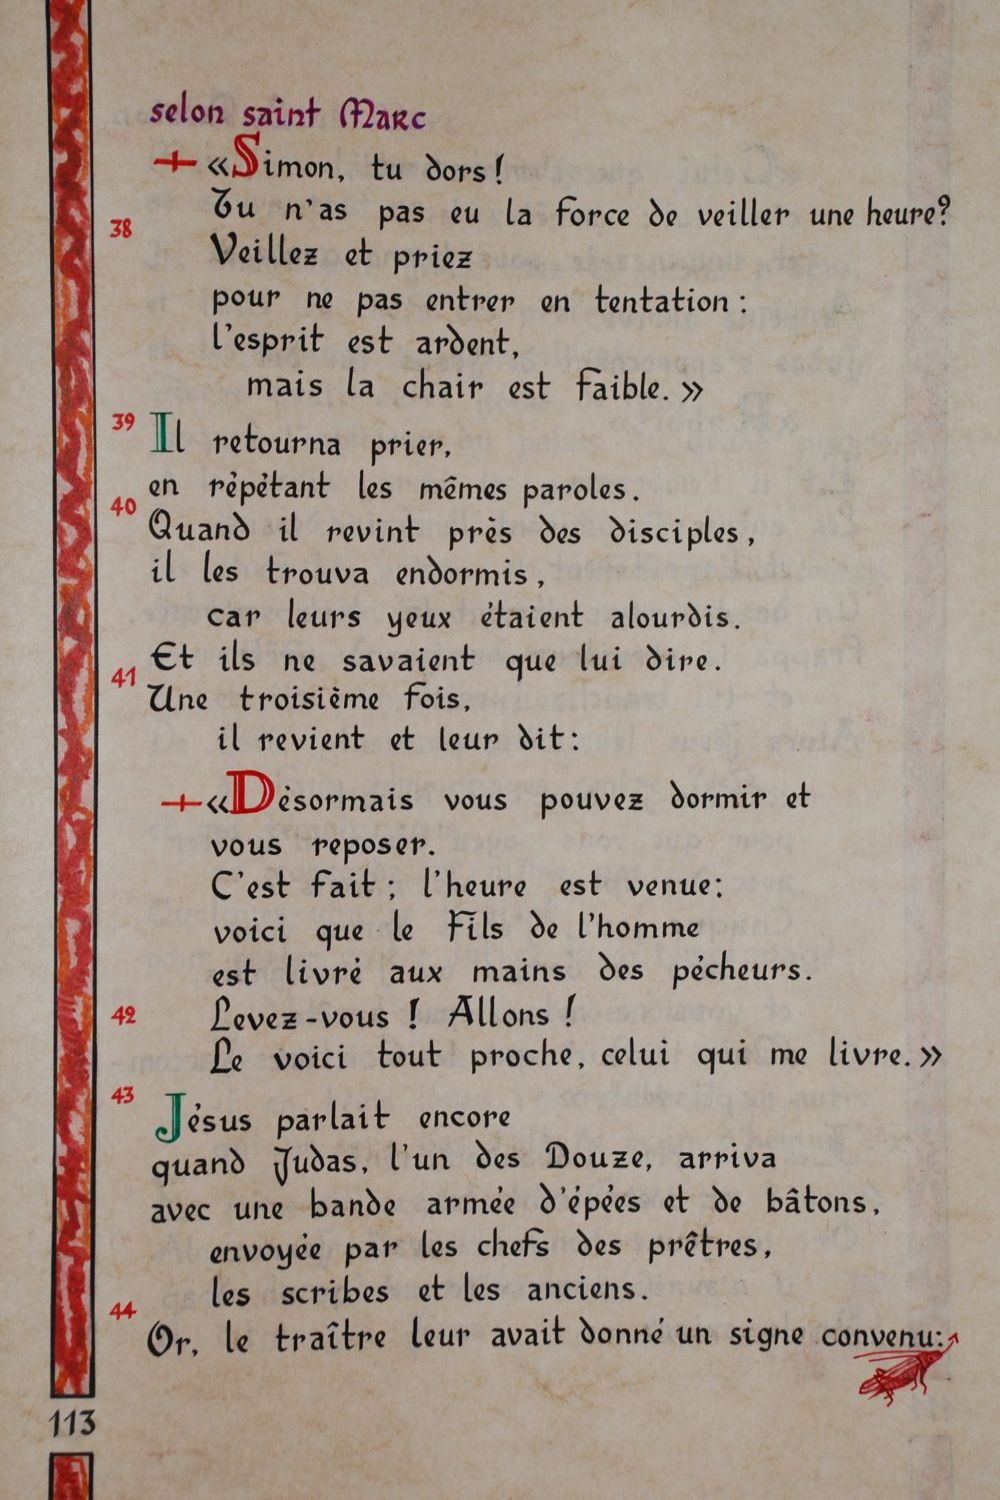 selon saint Marc
+ «Simon, tu dors!
Tu n'as pas eu la force de veiller une heure?
38
Veillez et priez
pour ne pas entrer en tentation :
l'esprit est ardent,
mais la chair est faible. »
39
Il retourna prier,
en répétant les mêmes paroles.
40
Quand il revint près des disciples,
il les trouva endormis,
car leurs yeux étaient alourdis.
Et ils ne savaient que lui dire.
41
Une troisième fois,
il revient et leur dit:
+ «Désormais vous pouvez dormir et
vous reposer.
C'est fait ; l'heure est venue:
voici que le Fils de l'homme
est livré aux mains des pécheurs.
42
Levez-vous ! Allons !
Le voici tout proche, celui qui me livre. »
43
Jésus parlait encore
quand Judas, l'un des Douze, arriva
avec une bande armée d'épées et de bâtons,
envoyée par les chefs des prêtres,
les scribes et les anciens.
44
Or, le traître leur avait donné un signe convenu:
113